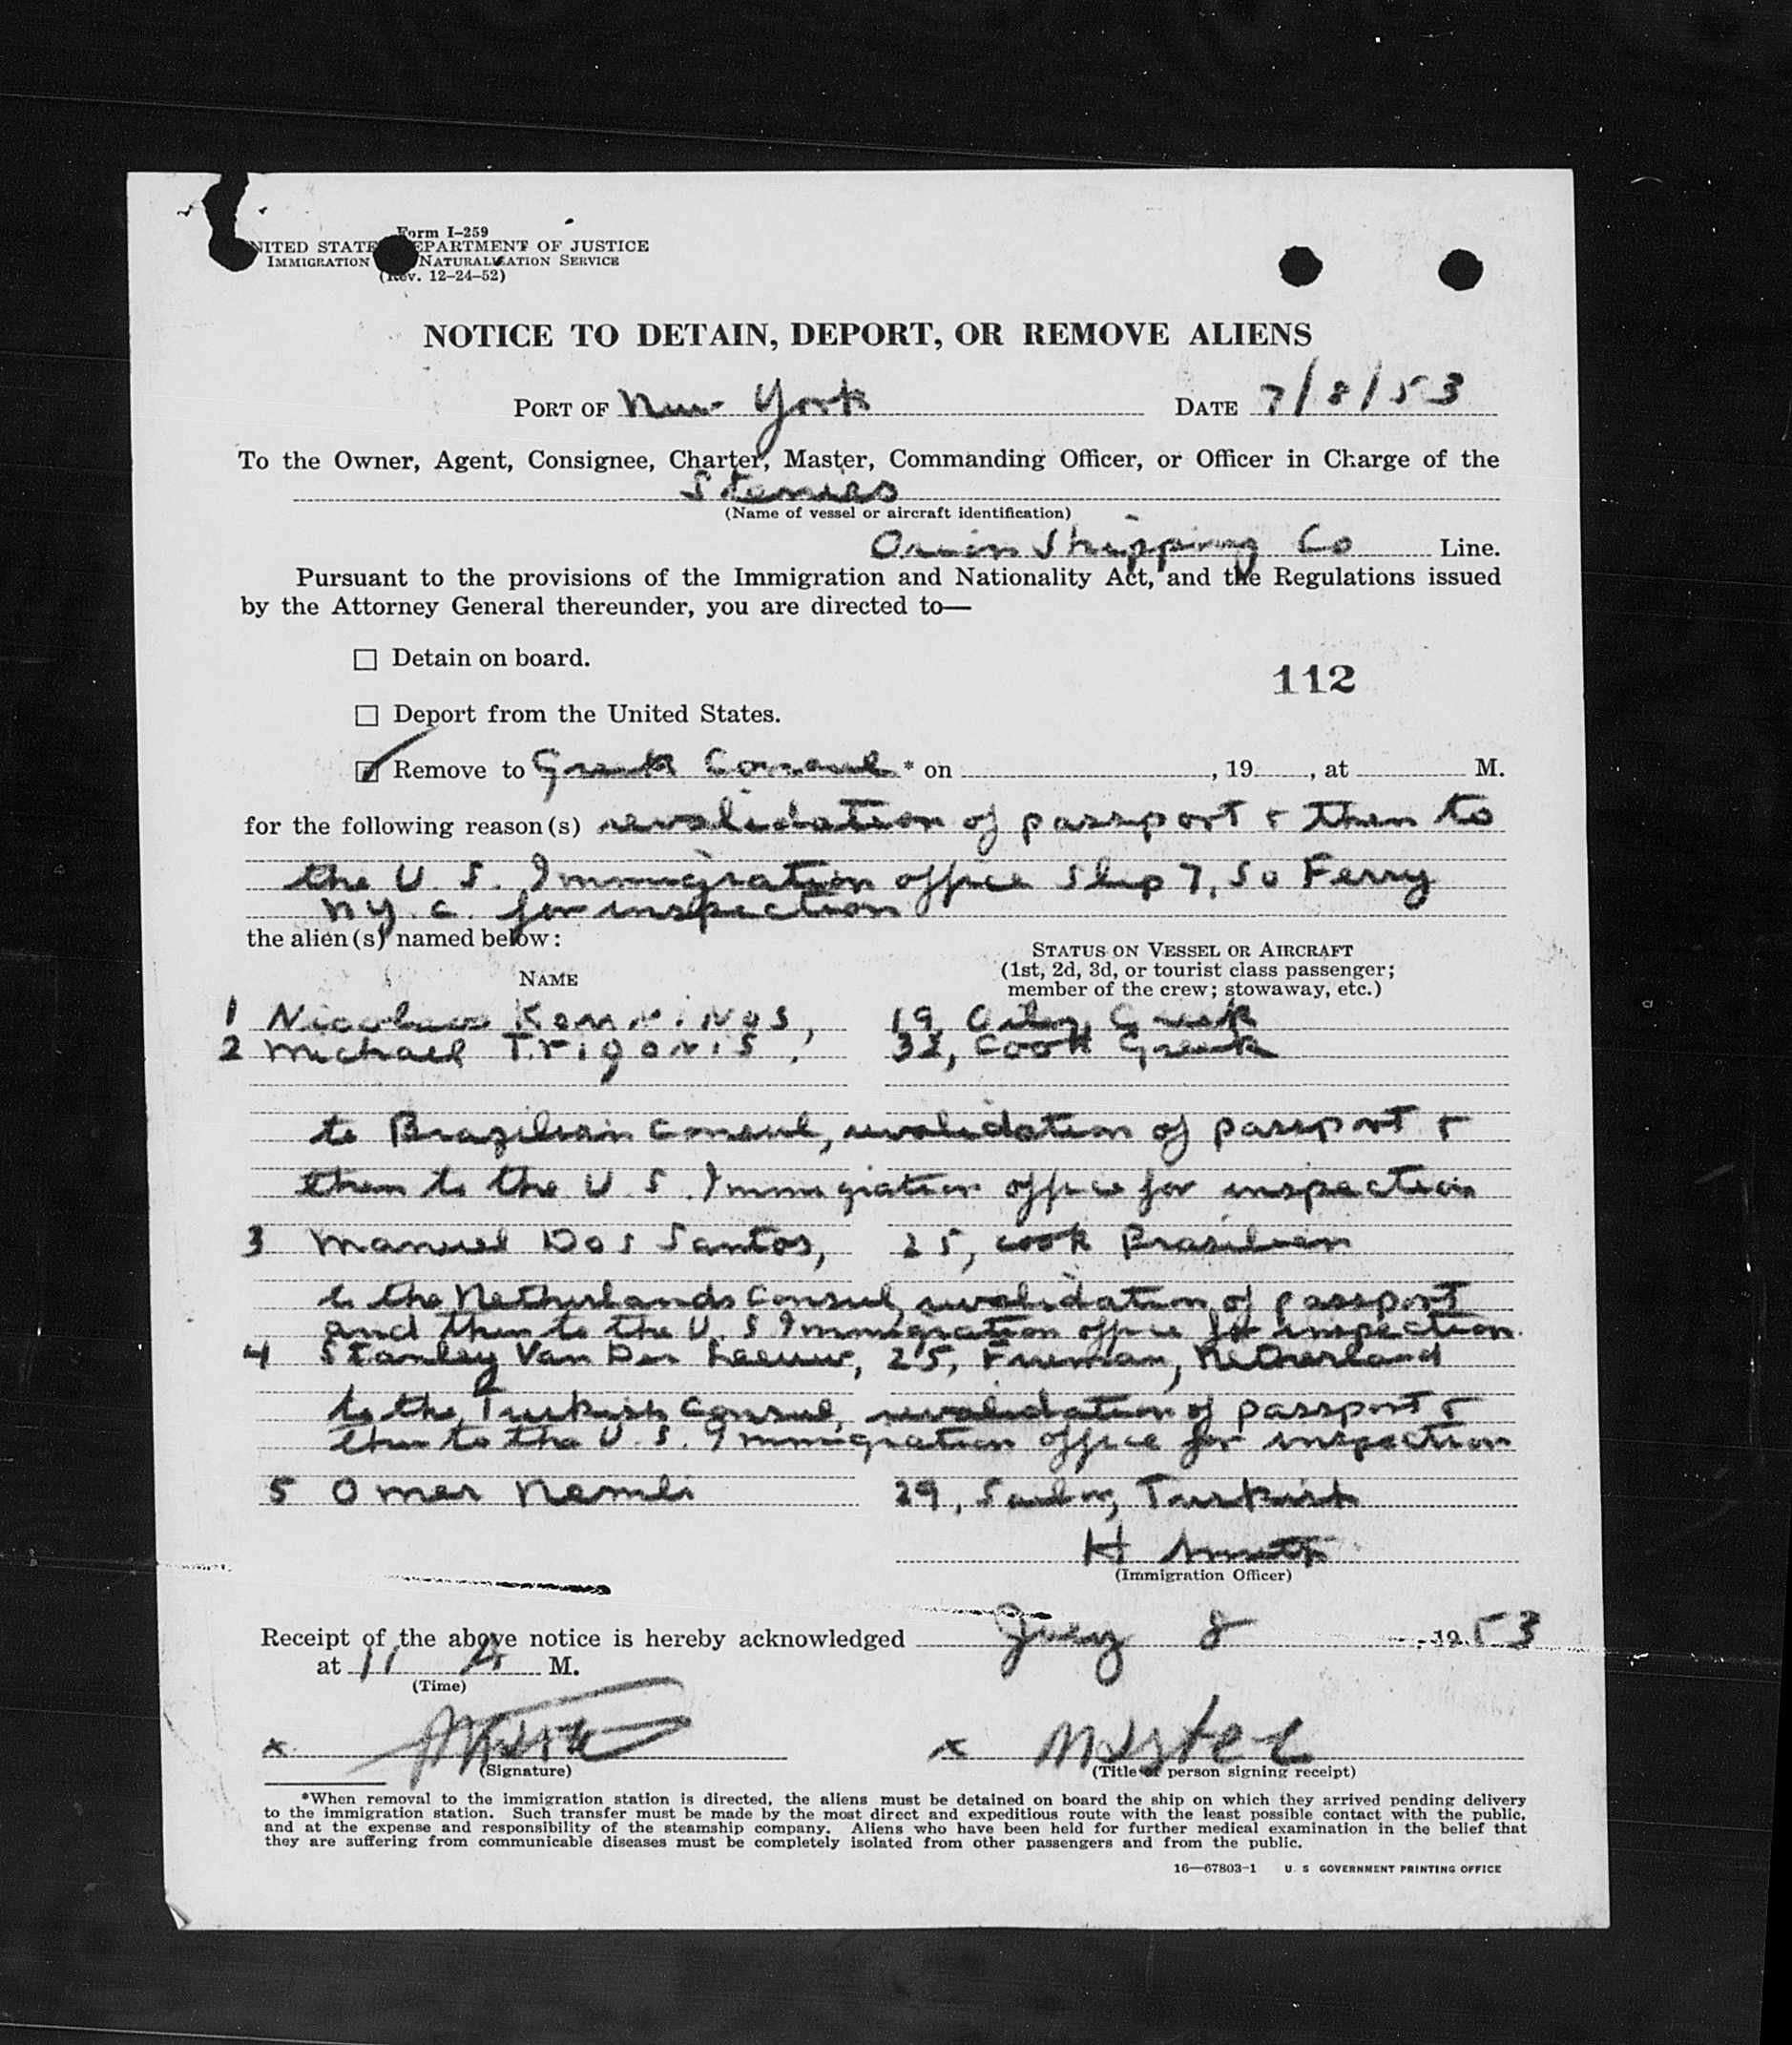 Form I-259
UNITED STATES DEPARTMENT OF JUSTICE
IMMIGRATION NATURALIZATION SERVICE
(Rev. 12-24-52)
NOTICE TO DETAIN, DEPORT, OR REMOVE ALIENS
PORT OF New York DATE 7/8/53
To the Owner, Agent, Consignee, Charter, Master, Commanding Officer, or Officer in Charge of the
Stenies
(Name of vessel or aircraft identification)
Orion Shipping Co Line.
Pursuant to the provisions of the Immigration and Nationality Act, and the Regulations issued
by the Attorney General thereunder, you are directed to—
Detain on board.
112
Deport from the United States.
Remove to Greek Consul * on , 19 , at M.
for the following reason(s) revalidation of passport & then to
the U. S. Immigration office Slip 7, So Ferry
N.Y.C. for inspection
the alien(s) named below:
STATUS ON VESSEL OR AIRCRAFT
(1st, 2d, 3d, or tourist class passenger;
NAME
member of the crew; stowaway, etc.)
1 Nicolaos 19, Greek
2 Michael Trigonis, 32, Cook Greek
to Brazilian Consul, revalidation of passport &
then to the U. S. Immigration office for inspection
3 Manuel Dos Santos, 25, cook Brazilian
to the Netherlands Consul, revalidation of passport
and then to the U. S Immigration office for inspection.
4 Stanley Van Der Leeuw, 25, Fireman, Netherland
to the Turkish Consul, revalidation of passport &
then to the U. S. Immigration office for inspection
5 Omer Nemli 29, Sailor, Turkish
H
(Immigration Officer)
Receipt of the above notice is hereby acknowledged July 8, 1953
at 11 A M.
(Time)
x x
(Signature) (Title of person signing receipt)
*When removal to the immigration station is directed, the aliens must be detained on board the ship on which they arrived pending delivery
to the immigration station. Such transfer must be made by the most direct and expeditious route with the least possible contact with the public,
and at the expense and responsibility of the steamship company. Aliens who have been held for further medical examination in the belief that
they are suffering from communicable diseases must be completely isolated from other passengers and from the public.
16—67803-1 U. S GOVERNMENT PRINTING OFFICE